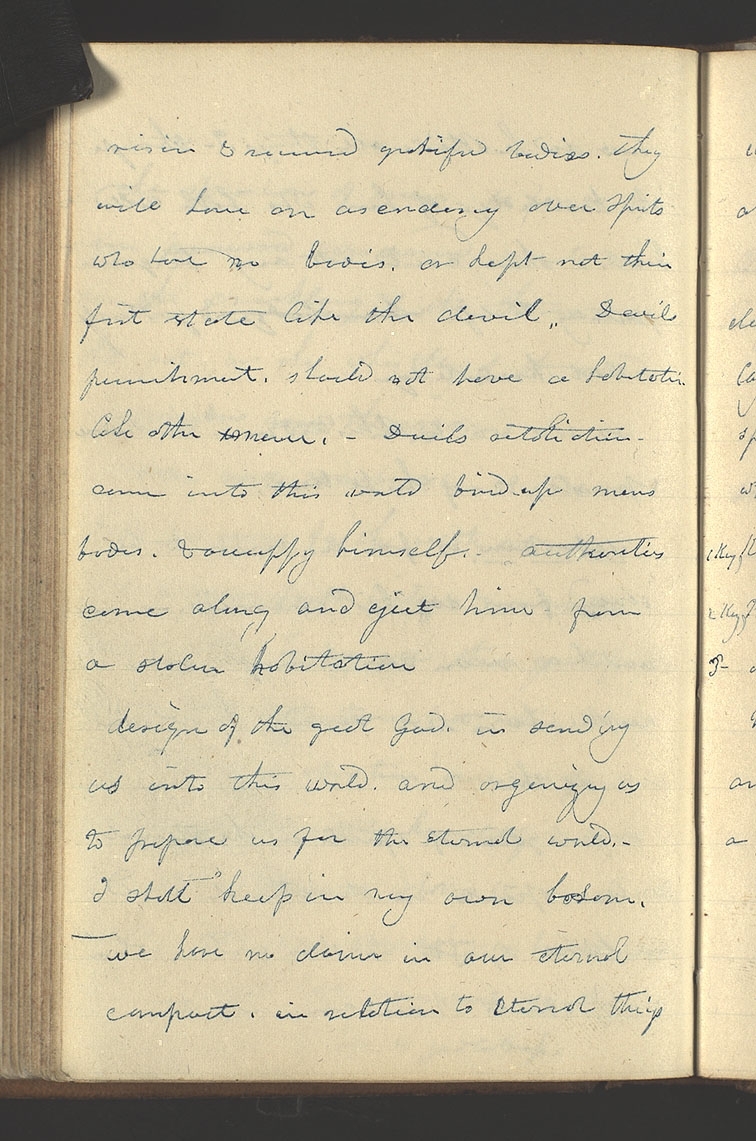 risen & received glorified bodies. they
will have an asendency over spirits
who have no bodies. or kept not their
first state like the devil,, Devils
punishment. should not have a habitation
like other men. - Devils retaliation -
come into this world bind up mens
bodies. & occuppy himself. authorities
come along and eject him from
a stolen habitation
design of the great God. in sending
us into this world. and organizing us
to prepare us for the eternal world. -
I shall keep in my own bosom.
we have no claim in our eternal
compact. in relation to Eternal things